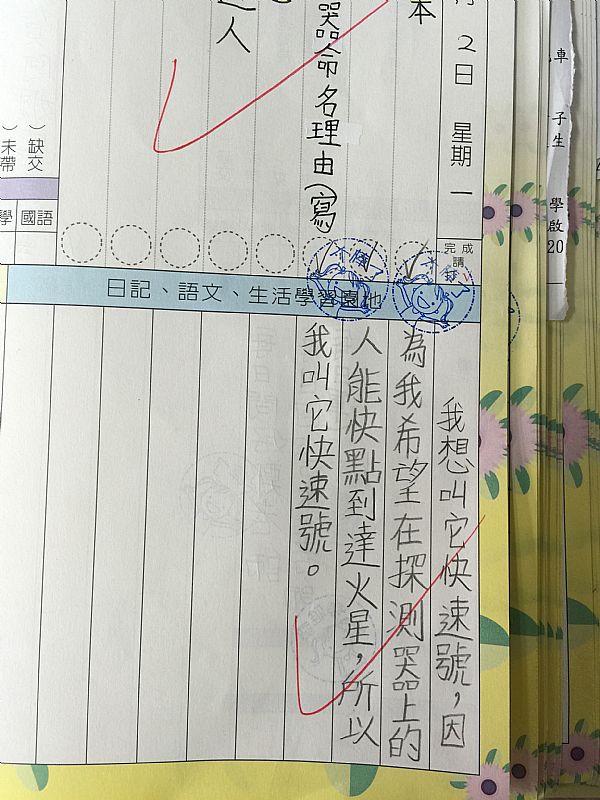 2日 星期一
本
器命名理由(寫
人
缺交
未帶
國語
學
完成
請打
日記、語文、生活學習園地
我想叫它快速號，因
為我希望在探測器上的
人能快點到達火星，所以
我叫它快速號。
車
子
生
學
啟
20